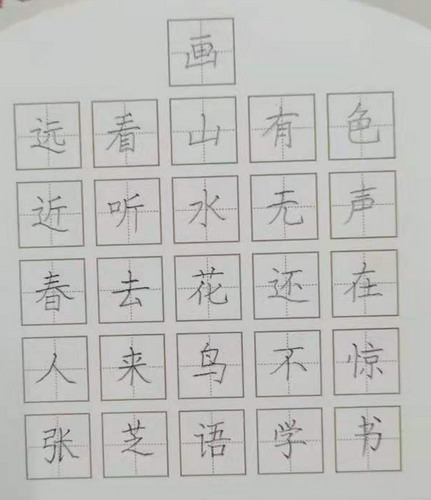 画
远看山有色
近听水无声
春去花还在
人来鸟不惊
张芝语学书